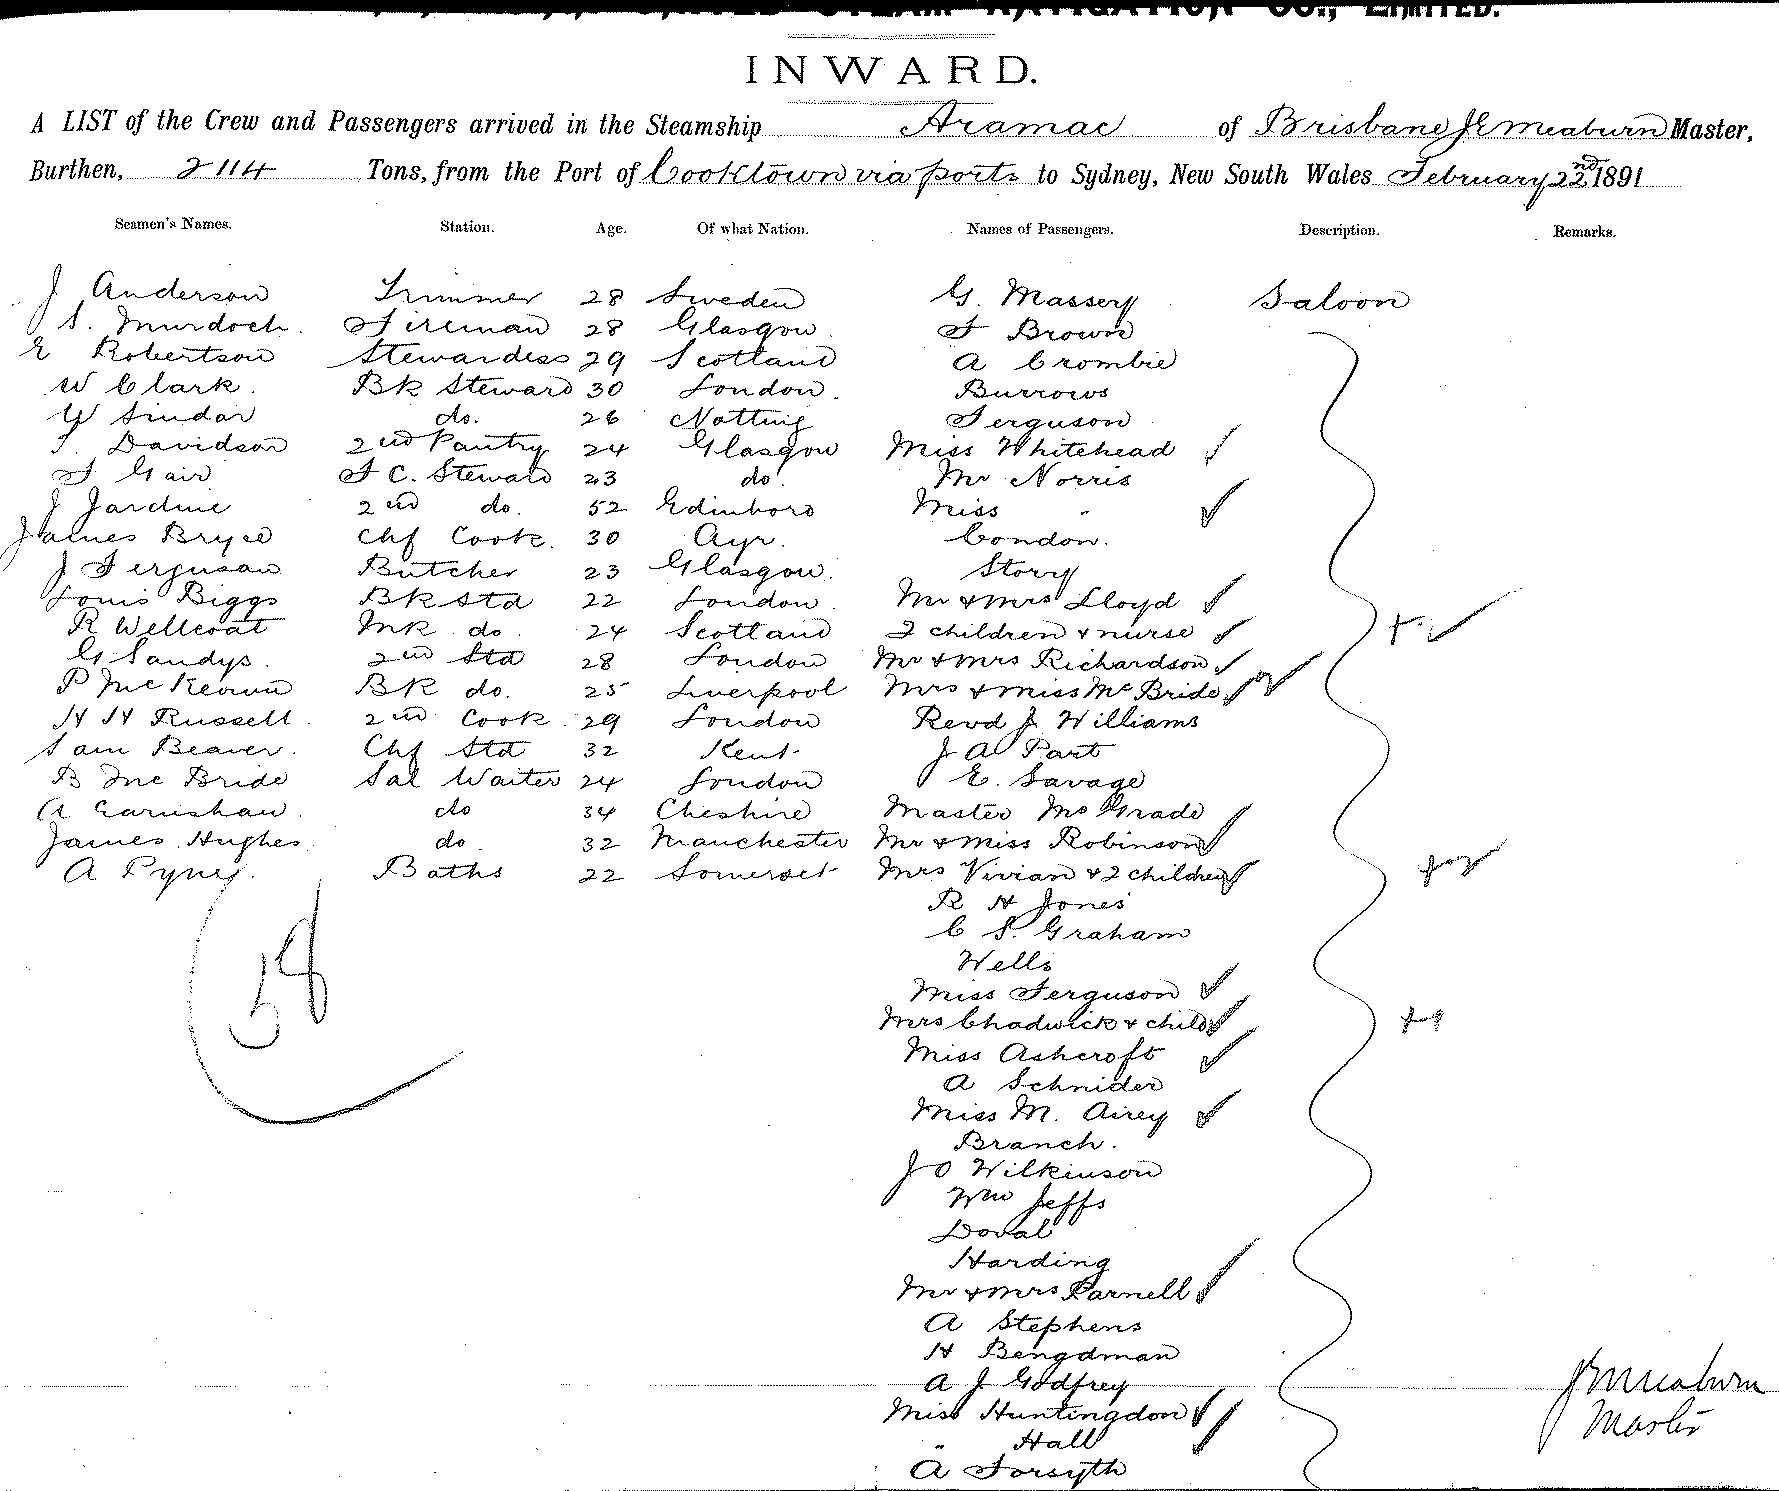 STEAM NAVIGATION CO., LIMITED.
INWARD.
A LIST of the Crew and Passengers arrived in the Steamship Aramac of Brisbane J E Meaburn Master,
Burthen, 2114 Tons, from the Port of Cooktown via ports to Sydney, New South Wales February 22nd 1891
Seamen's Names. Station. Age. Of what Nation. Names of Passengers. Description. Remarks.
J Anderson Trimmer 28 Sweden G. Massery Saloon
S. Murdoch. Fireman 28 Glasgow F Brown
E Robertson Stewardess 29 Scotland A Crombie
W Clark. Bk Steward 30 London. Burrows
do. 26 Notting Ferguson
Davidson 2nd Pantry 24 Glasgow Miss Whitehead
F Gair F C. Steward 23 do. Mr Norris
J Jardine 2nd do. 52 Edinboro Miss "
James Bryce Chf Cook. 30 Ayr. Condon.
J Ferguson Butcher 23 Glasgow. Story
Louis Biggs Bk Std 22 London. Mr & Mrs Lloyd
R Wellcoat Mk do. 24 Scotland 2 children & nurse
G Sandys. 2nd Std 28 London Mr & Mrs Richardson
P McKeown BK do. 25 Liverpool Mrs & Miss McBride
H H Russell. 2nd Cook. 29 London Revd J Williams
Sam Beaver. Chf Std 32 Kent. J A Part
B McBride Sal Waiter 24 London E. Savage
A Earnshaw. do 34 Cheshire Master McGrade
James Hughes do. 32 Manchester Mr & Miss Robinson
A Pyne. Baths 22 Somerset Mrs Vivian & 2 children
R H Jones
C S. Graham
Wells
58
Miss Ferguson
Mrs Chadwick & child
+9
Miss Ashcroft
A Schnider
Miss M. Airey
Branch.
J O Wilkinson
Wm Jeffs
Doval
Harding
Mr & Mrs Parnell
A Stephens
H Bengdman
A J Godfrey
J E Meaburn
Miss Huntingdon
Master
" Hall
A Forsyth